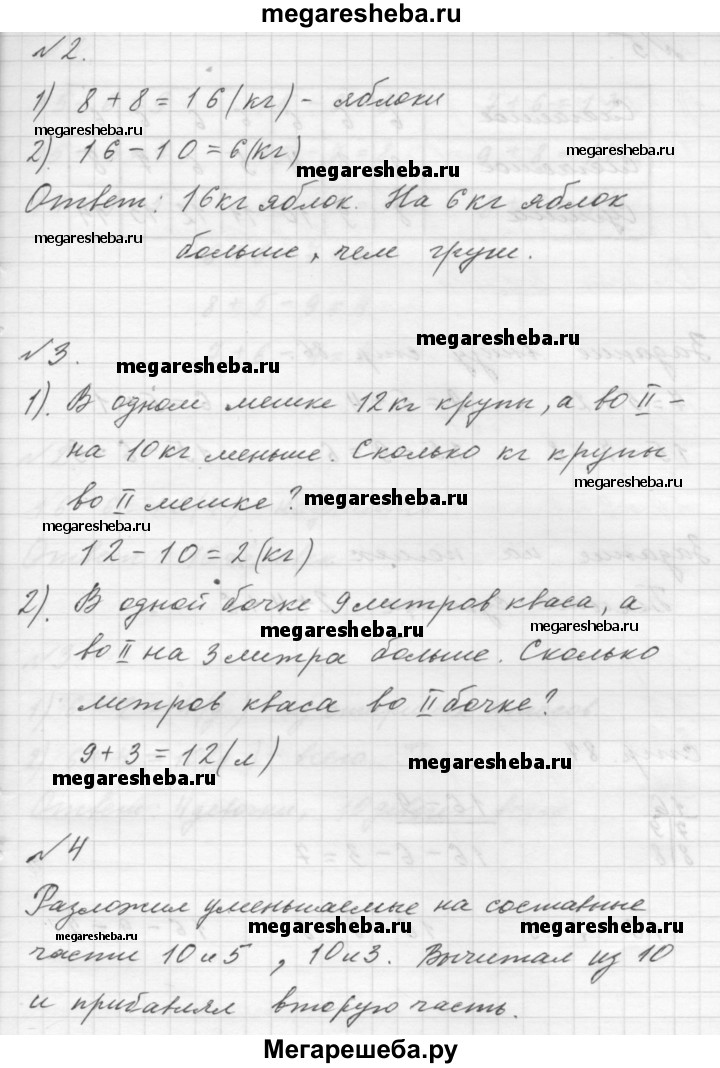 megaresheba.ru
№2.
1) 8 + 8 = 16 (кг) - яблоки
megaresheba.ru
2). 16 - 10 = 6 (кг)
megaresheba.ru
Ответ: 16 кг яблок. На 6 кг яблок
megaresheba.ru
больше, чем груш.
megaresheba.ru
№3.
megaresheba.ru
1). В одном мешке 12 кг крупы, а во II -
на 10 кг меньше. Сколько кг крупы
megaresheba.ru
во II мешке?
megaresheba.ru
megaresheba.ru
12 - 10 = 2 (кг)
2). В одной бочке 9 литров кваса, а
megaresheba.ru
megaresheba.ru
во II на 3 литра больше. Сколько
литров кваса во II бочке?
9 + 3 = 12 (л)
megaresheba.ru
megaresheba.ru
№4
Разложил уменьшаемые на составные
megaresheba.ru
megaresheba.ru
части 10 и 5, 10 и 3. Вычитал из 10
и прибавлял вторую часть.
Мегарешеба.ру